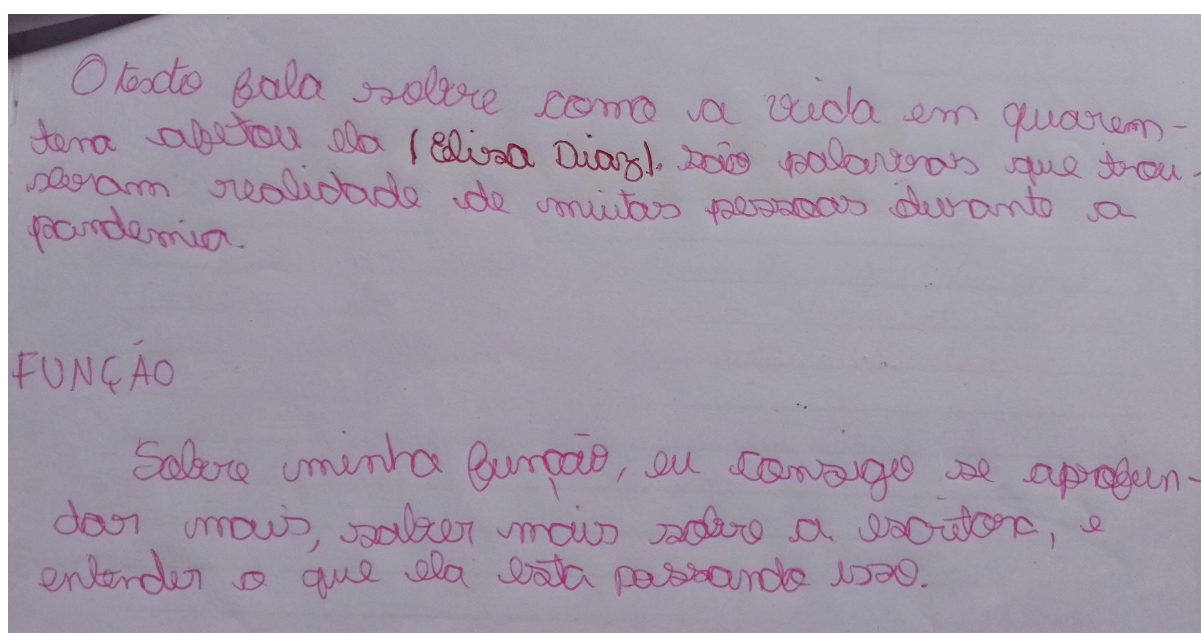 O texto fala sobre como a vida em quaren-
tena afetou ela (Eliza Diaz). são palavras que trou-
xeram realidade de muitas pessoas durante a
pandemia.
FUNÇÃO
Sobre minha função, eu consigo se aprofun-
dar mais, saber mais sobre a escritora, e
entender o que ela está passando isso.